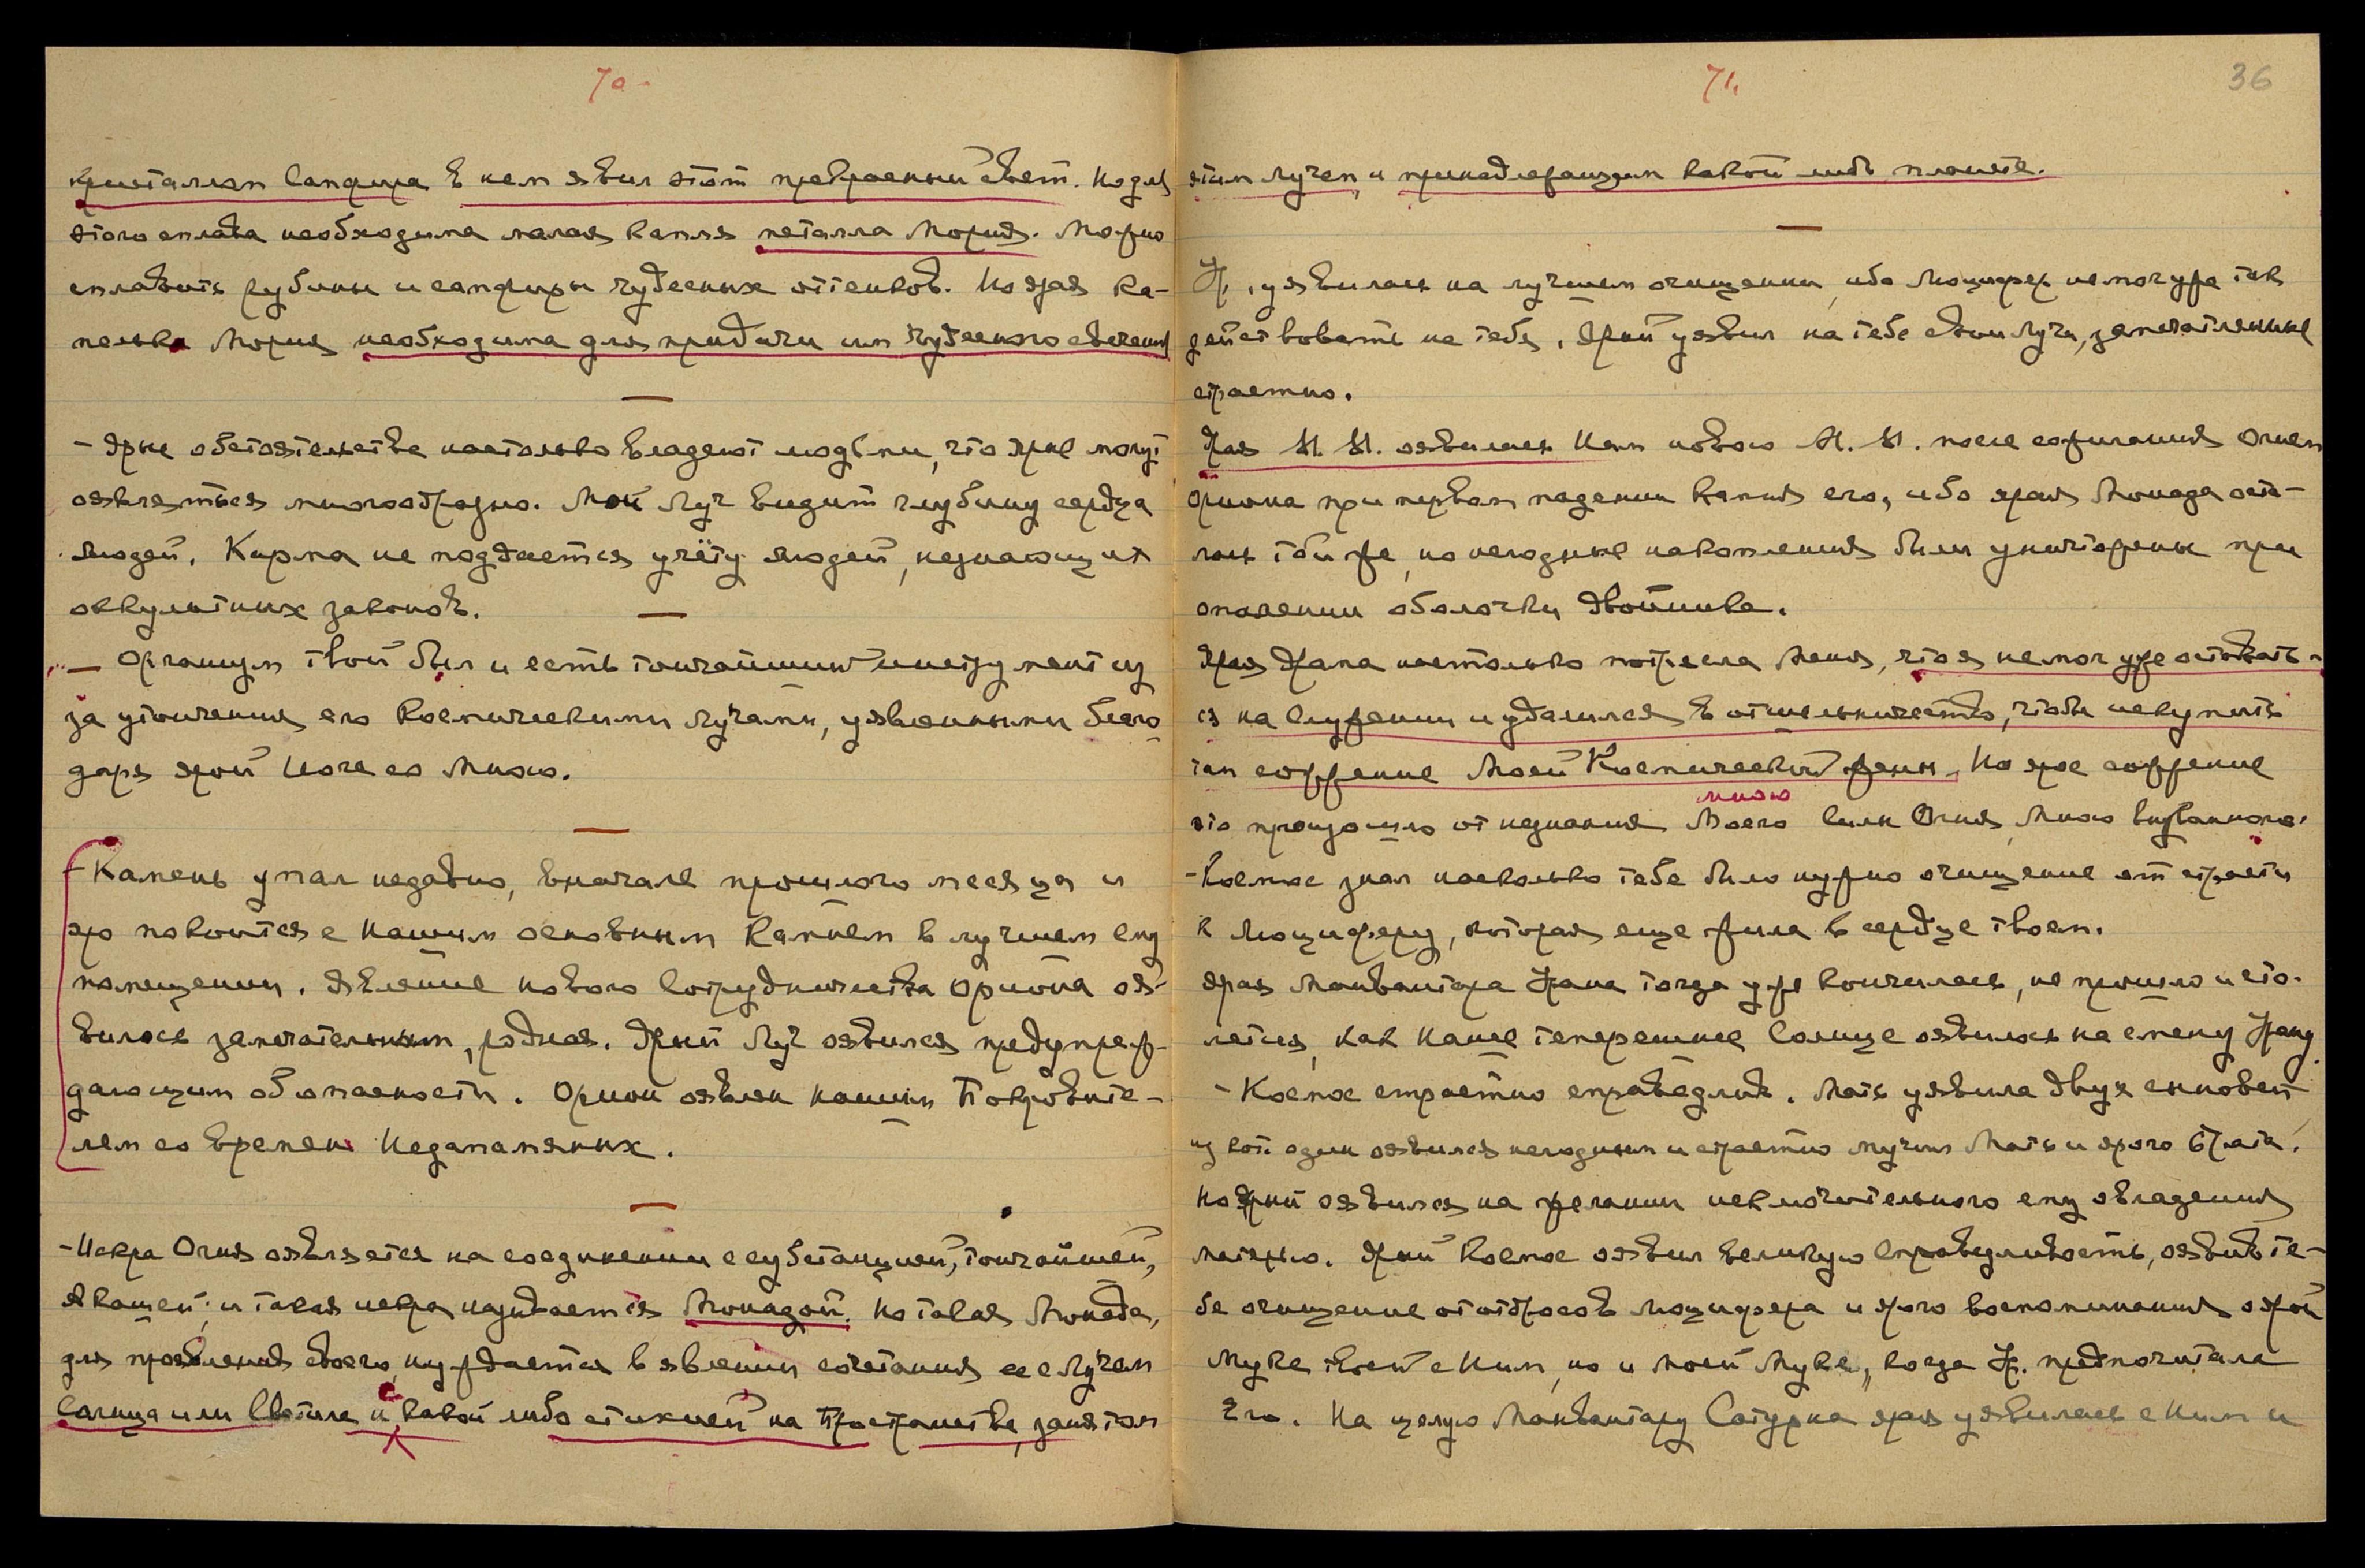 70.
кристаллом сапфира в нем явил этот прекрасный свет. Но для
этого сплава необходима малая капля металла Мория. Можно
сплавить рубины и сапфиры чудесных оттенков. Но ярая ка-
пелька Мория необходима для придачи им чудесного свечения
— Ярые обстоятельства настолько владеют людьми, что ярые могут
оявляться многообразно. Мой Луч видит глубину сердца
людей. Карма не поддается учёту людей, незнающих
оккультных законов.
— Организм твой был и есть тончайший инструмент из
за утончения его Космическими Лучами, уявленными благо
даря ярой Йоге со Мною.
— Камень упал недавно, вначале прошлого месяца и
яро покоится с Нашим основным Камнем в лучшем ему
помещении. Явление нового Сотрудничества Ориона оя-
вилось замечательным, родная. Ярый Луч оявился предупреж-
дающим об опасности. Орион оявлен нашим Покровите-
лем со времен Незапамятных.
— Искра Огня оявляется на соединении с субстанцией, тончайшей,
Акашей; и такая искра называется Монадой. Но такая Монада,
для проявления своего, нуждается в явлении сочетания ее с Лучем
Солнца или Светила и с какой либо стихией на Пространстве, занятом
71.
36
этим Лучем, и принадлежащим какой либо планете.
Ур. уявилась на лучшем очищении, ибо Люцифер не мог уже так
действовать на тебя. Ярый уявил на тебе свои Лучи, запечатленные
страстно.
Ярая И. И. оявилась Нам новою И. И. после сожигания Огнем
Ориона при первом падении Камня его, ибо ярая Монада оста-
лась та же, но негодные накопления были уничтожены при
опалении оболочки двойника.
Ярая Драма настолько потрясла Меня, что я не мог уже оставать-
ся на Служении и удалился в отшельничество, чтобы искупить
там сожжение Моей Космической жены. Но ярое сожжение
это произошло от незнания Моего мною силы Огня, Мною вызванного.
— Космос знал насколько тебе было нужно очищение от страсти
к Люциферу, которая еще жила в сердце твоем.
Ярая Манвантара Урана тогда уже кончилась, не прошло и сто-
летия, как Наше теперешнее Солнце оявилось на смену Урану
— Космос страстно справедлив. Мать уявила двух сыновей
из кот. один оявился негодным и страстно мучил Мать и ярого брата.
Но ярый оявился на желании исключительного ему овладения
матерью. Ярый Космос оявил великую Справедливость, оявив те-
бе очищение от отбросов Люцифера и ярого воспоминания о ярой
Муке твоей с Ним, но и моей Муке, когда Ур. предпочитала
Его. На целую Манвантару Сатурна ярая уявилась с Ним и